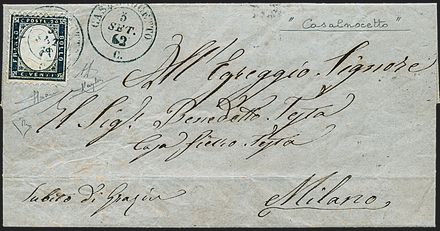 "Casalnocetto"
FRANCO POSTE
C. VENTI
5
SET.
62
C.
All Egreggio Signore
Il Sigr. Benedetto Testa
Casa Pietro Testa
Subito di Grazia
Milano